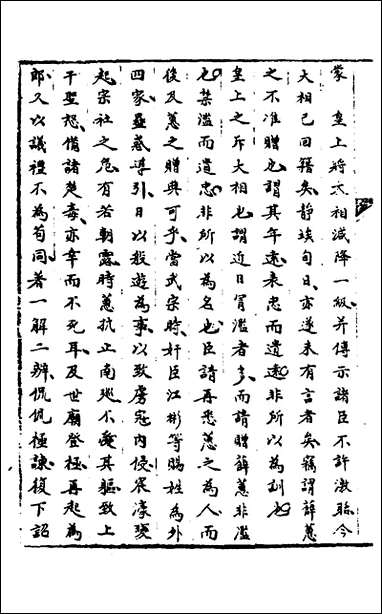 蒙　皇上將大相減降一級并傳示諸臣不許激聒今
大相已回籍矣靜埃旬日亦遂未有言者矣竊謂薛蕙
之不准贈也謂其年遠表忠而遺遠非所以為訓也
皇上之斥大相也謂近日冒濫者多而請贈薛蕙非濫
也禁濫而遺忠非所以為名也臣請再悉蕙之為人而
後及蕙之贈典可乎當武宗時奸臣江彬等賜姓為外
四家蠱惑導引日以般遊為事以致虜寇內侵宸濠
起宗社之危有若朝露時蕙抗止南巡不其軀致上
干聖怒備諸楚毒亦幸而不死耳及世廟登極再起為
郎又以議禮不為苟同著一解二辨侃侃極諫復下詔